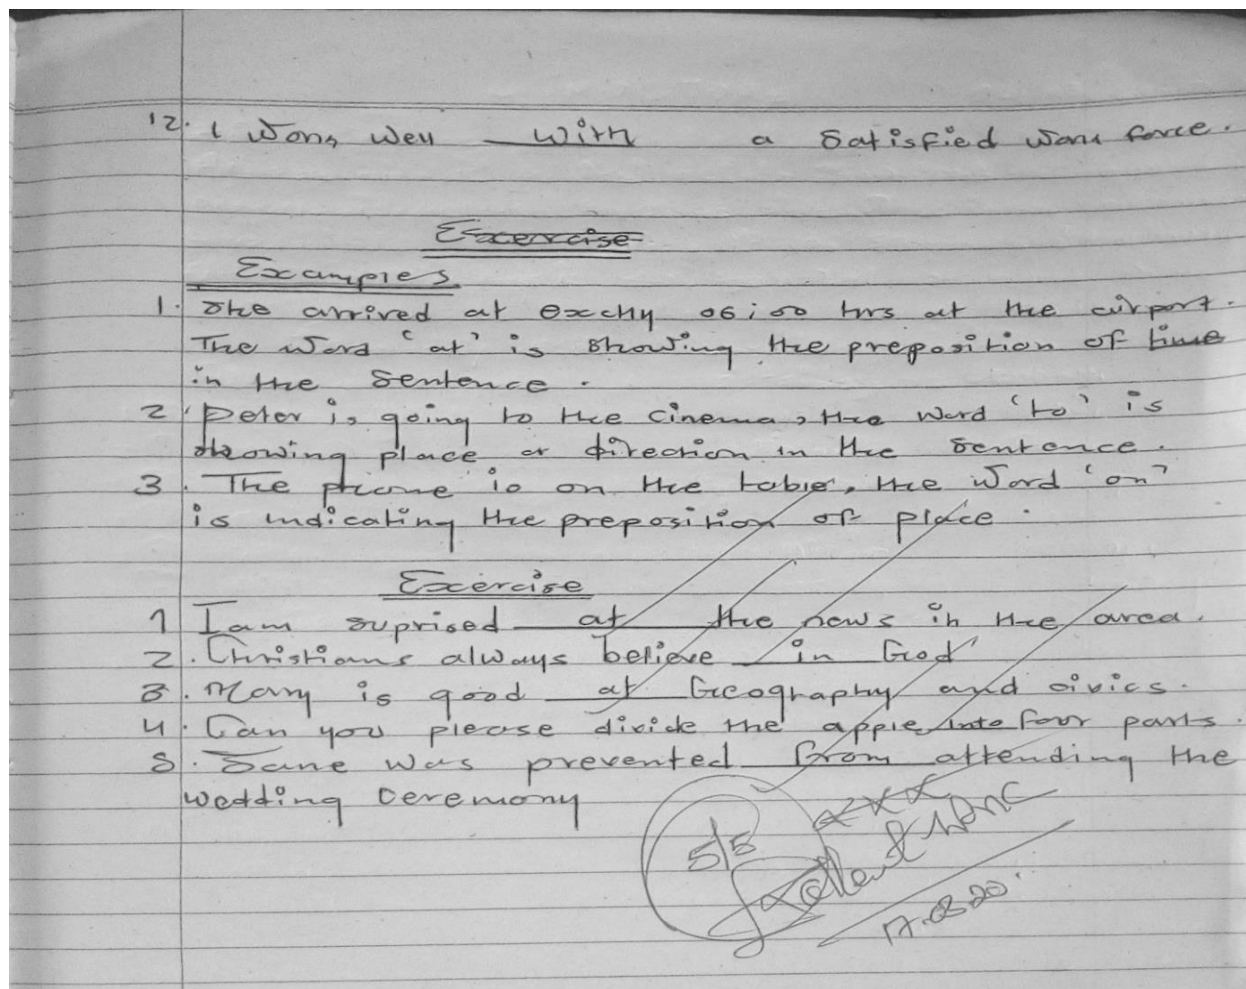 12. I work well with a satisfied work force.
Excercise
Examples
1. She arrived at exctly 06:00 hrs at the airport.
The word 'at' is showing the preposition of time
in the sentence.
2. Peter is going to the cinema, the word 'to' is
showing place or direction in the sentence.
3. The phone is on the table, the word 'on'
is indicating the preposition of place.
Exercise
1 I am suprised at the news in the area.
2. Christians always believe in God
3. Mary is good at Geography and civics.
4. Can you please divide the apple into four parts.
5. Jane was prevented from attending the
wedding ceremony
5/5
Excellent work
17.03.20.